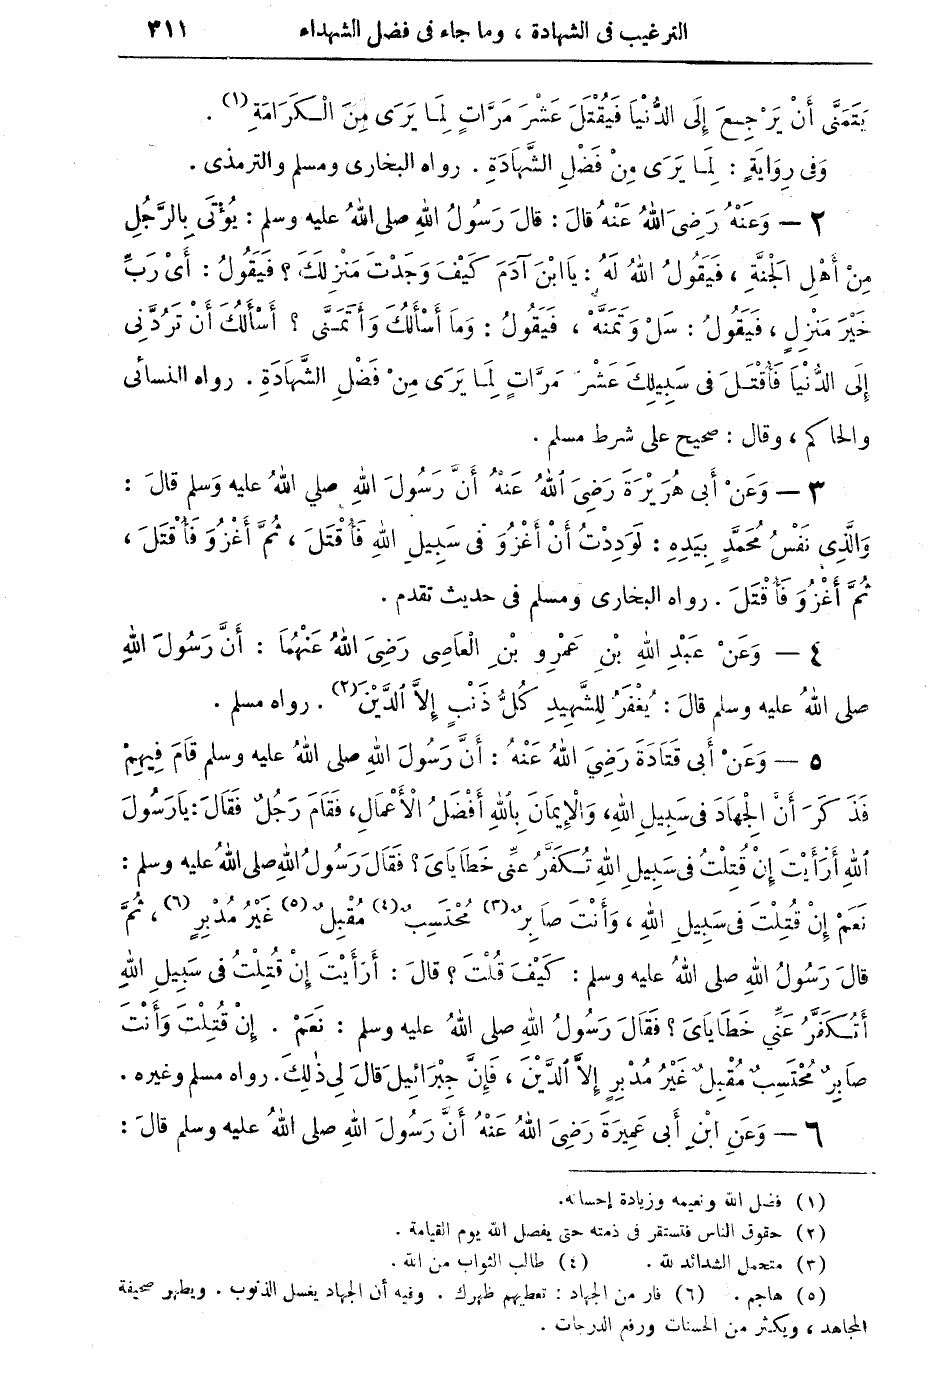 الترغيب فى الشهادة ، وما جاء فى فضل الشهداء ٣١١
يَتَمَنَّى أَنْ يَرْجِعَ إِلَى الدُّنْيَا فَيُقْتَلَ عَشْرَ مَرَّاتٍ لِمَا يَرَى مِنَ الْكَرَامَةِ (١) .
وَفى رِوَايَةٍ : لِمَا يَرَى مِنْ فَضْلِ الشَّهَادَةِ . رواه البخارى ومسلم والترمذى .
٢ – وَعَنْهُ رَضِىَ اللهُ عَنْهُ قالَ : قالَ رَسُولُ اللهِ صلى اللهُ عليه وسلم : يُؤْتَى بِالرَّجُلِ
مِنْ أَهْلِ الْجَنَّةِ ، فَيَقُولُ اللهُ لَهُ : يَاابْنَ آدَمَ كَيْفَ وَجَدْتَ مَنْزِلَكَ ؟ فَيَقُولُ : أَىْ رَبِّ
خَيْرَ مَنْزِلٍ ، فَيَقُولُ : سَلْ وَتَمَنَّهْ ، فَيَقُولُ : وَمَا أَسْأَلُكَ وَأَتَمَنَّى ؟ أَسْأَلُكَ أَنْ تَرُدَّنِى
إِلَى الدُّنْيَا فَأُقْتَلَ فى سَبِيلِكَ عَشْرَ مَرَّاتٍ لِمَا يَرَى مِنْ فَضْلِ الشَّهَادَةِ . رواه النسائى
والحاكم ، وقال : صحيح على شرط مسلم .
٣ – وَعَنْ أَبى هُرَيْرَةَ رَضِىَ اللهُ عَنْهُ أَنَّ رَسُولَ اللهِ صلي اللهُ عليه وَسلم قالَ :
وَالَّذِى نَفْسُ مُحَمَّدٍ بِيَدِهِ : لَوَدِدْتُ أَنْ أَغْزُوَ فى سَبِيلِ اللهِ فَأُقْتَلَ ، ثُمَّ أَغْزُوَ فَأُقْتَلَ ،
ثُمَّ أَغْزُوَ فَأُقْتَلَ . رواه البخارى ومسلم فى حديث تقدم .
٤ – وَعَنْ عَبْدِ اللهِ بْنِ عَمْرِو بْنِ الْعَاصِى رَضِىَ اللهُ عَنْهُمَا : أَنَّ رَسُولَ اللهِ
صلى اللهُ عليه وسلم قالَ : يُغْفَرُ لِلشَّهِيدِ كُلُّ ذَنْبٍ إِلاَّ الدَّيْنَ (٢) . رواه مسلم .
٥ – وَعَنْ أَبى قَتَادَةَ رَضِيَ اللهُ عَنْهُ : أَنَّ رَسُولَ اللهِ صلى اللهُ عليه وسلم قَامَ فِيهِمْ
فَذَكَرَ أَنَّ الْجِهَادَ فى سَبِيلِ اللهِ، وَالْإِيمَانَ بِاللهِ أَفْضَلُ الْأَعْمَالِ، فَقَامَ رَجُلٌ فَقَالَ: يَارَسُولَ
اللهِ أَرَأَيْتَ إِنْ قُتِلْتُ فى سَبِيلِ اللهِ تُكَفَّرُ عَنِّى خَطَايَاىَ ؟ فَقَالَ رَسُولُ اللهِ صلى اللهُ عليه وسلم :
نَعَمْ إِنْ قُتِلْتَ فى سَبِيلِ اللهِ ، وَأَنْتَ صَابِرٌ (٣) مُحْتَسِبٌ (٤) مُقْبِلٌ (٥) غَيْرُ مُدْبِرٍ (٦) ، ثُمَّ
قالَ رَسُولُ اللهِ صلى اللهُ عليه وسلم : كَيْفَ قُلْتَ ؟ قالَ : أَرَأَيْتَ إِنْ قُتِلْتُ فى سَبِيلِ اللهِ
أَتُكَفَّرُ عَنِّي خَطَايَاىَ ؟ فَقَالَ رَسُولُ اللهِ صلى اللهُ عليه وسلم : نَعَمْ . إِنْ قُتِلْتَ وَأَنْتَ
صَابِرٌ مُحْتَسِبٌ مُقْبِلٌ غَيْرُ مُدْبِرٍ إِلاَّ الدَّيْنَ ، فَإِنَّ جِبْرَائِيلَ قَالَ لِى ذٰلِكَ. رواه مسلم وغيره .
٦ – وَعَنِ ابْنِ أَبى عَمِيرَةَ رَضِىَ اللهُ عَنْهُ أَنَّ رَسُولَ اللهِ صلى اللهُ عليه وسلم قالَ :
(١) فضل الله ونعيمه وزيادة إحسانه.
(٢) حقوق الناس فتستقر فى ذمته حتى يفصل الله يوم القيامة .
(٣) متحمل الشدائد لله . (٤) طالب الثواب من الله .
(٥) هاجم . (٦) فار من الجهاد : تعطيهم ظهرك . وفيه أن الجهاد يغسل الذنوب . ويطهر صحيفة
المجاهد ، ويكثر من الحسنات ورفع الدرجات .